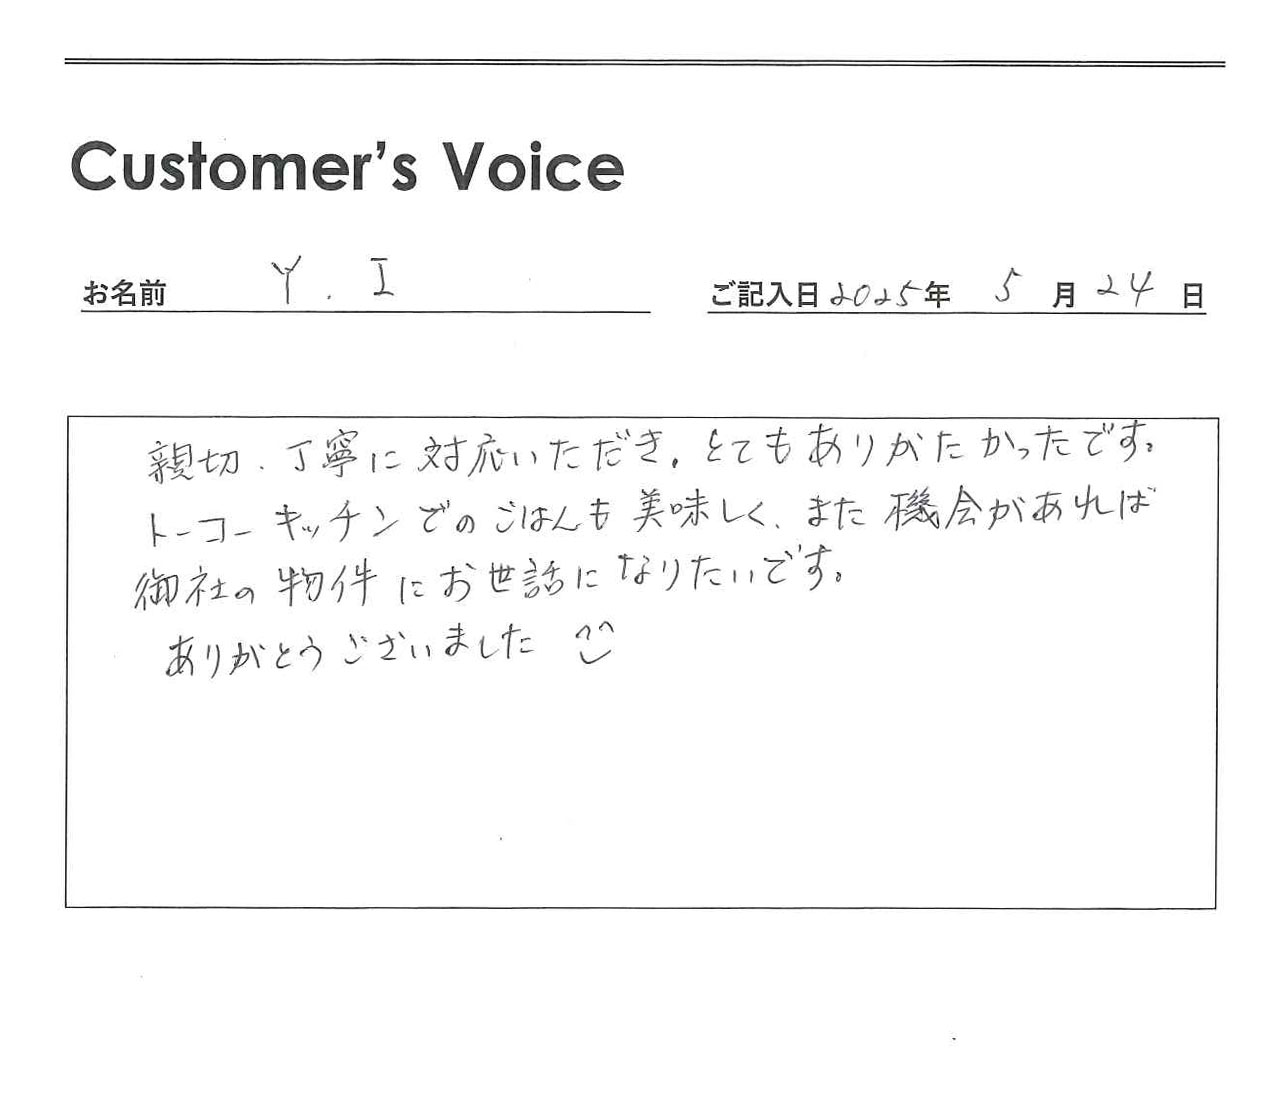 Customer's Voice
お名前 Y.I
ご記入日 2025年 5月 24日
親切、丁寧に対応いただき、とてもありがたかったです。
トーコーキッチンでのごはんも美味しく、また機会があれば
御社の物件にお世話になりたいです。
ありがとうございました